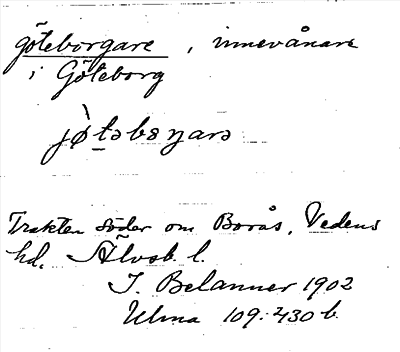 göteborgare , innevånare
i Göteborg
jø̀təbɔŋarə
Trakten söder om Borås, Vedens
hd. Älvsb. l.
J. Belanner 1902
Ulma 109:430 b.